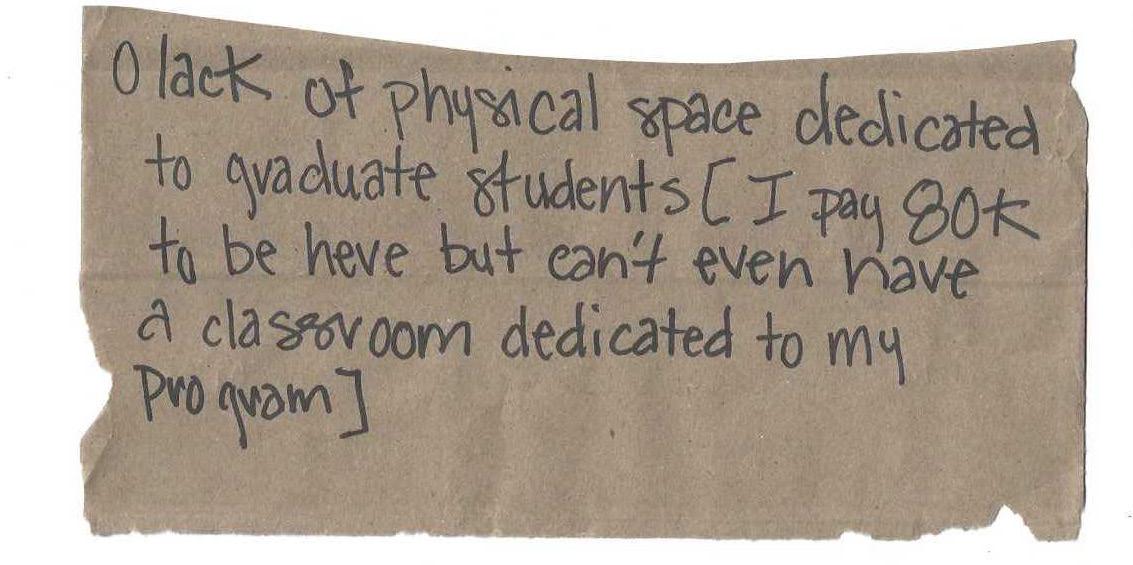 O lack of physical space dedicated
to graduate students [I pay 80K
to be here but can't even have
a classroom dedicated to my
program]